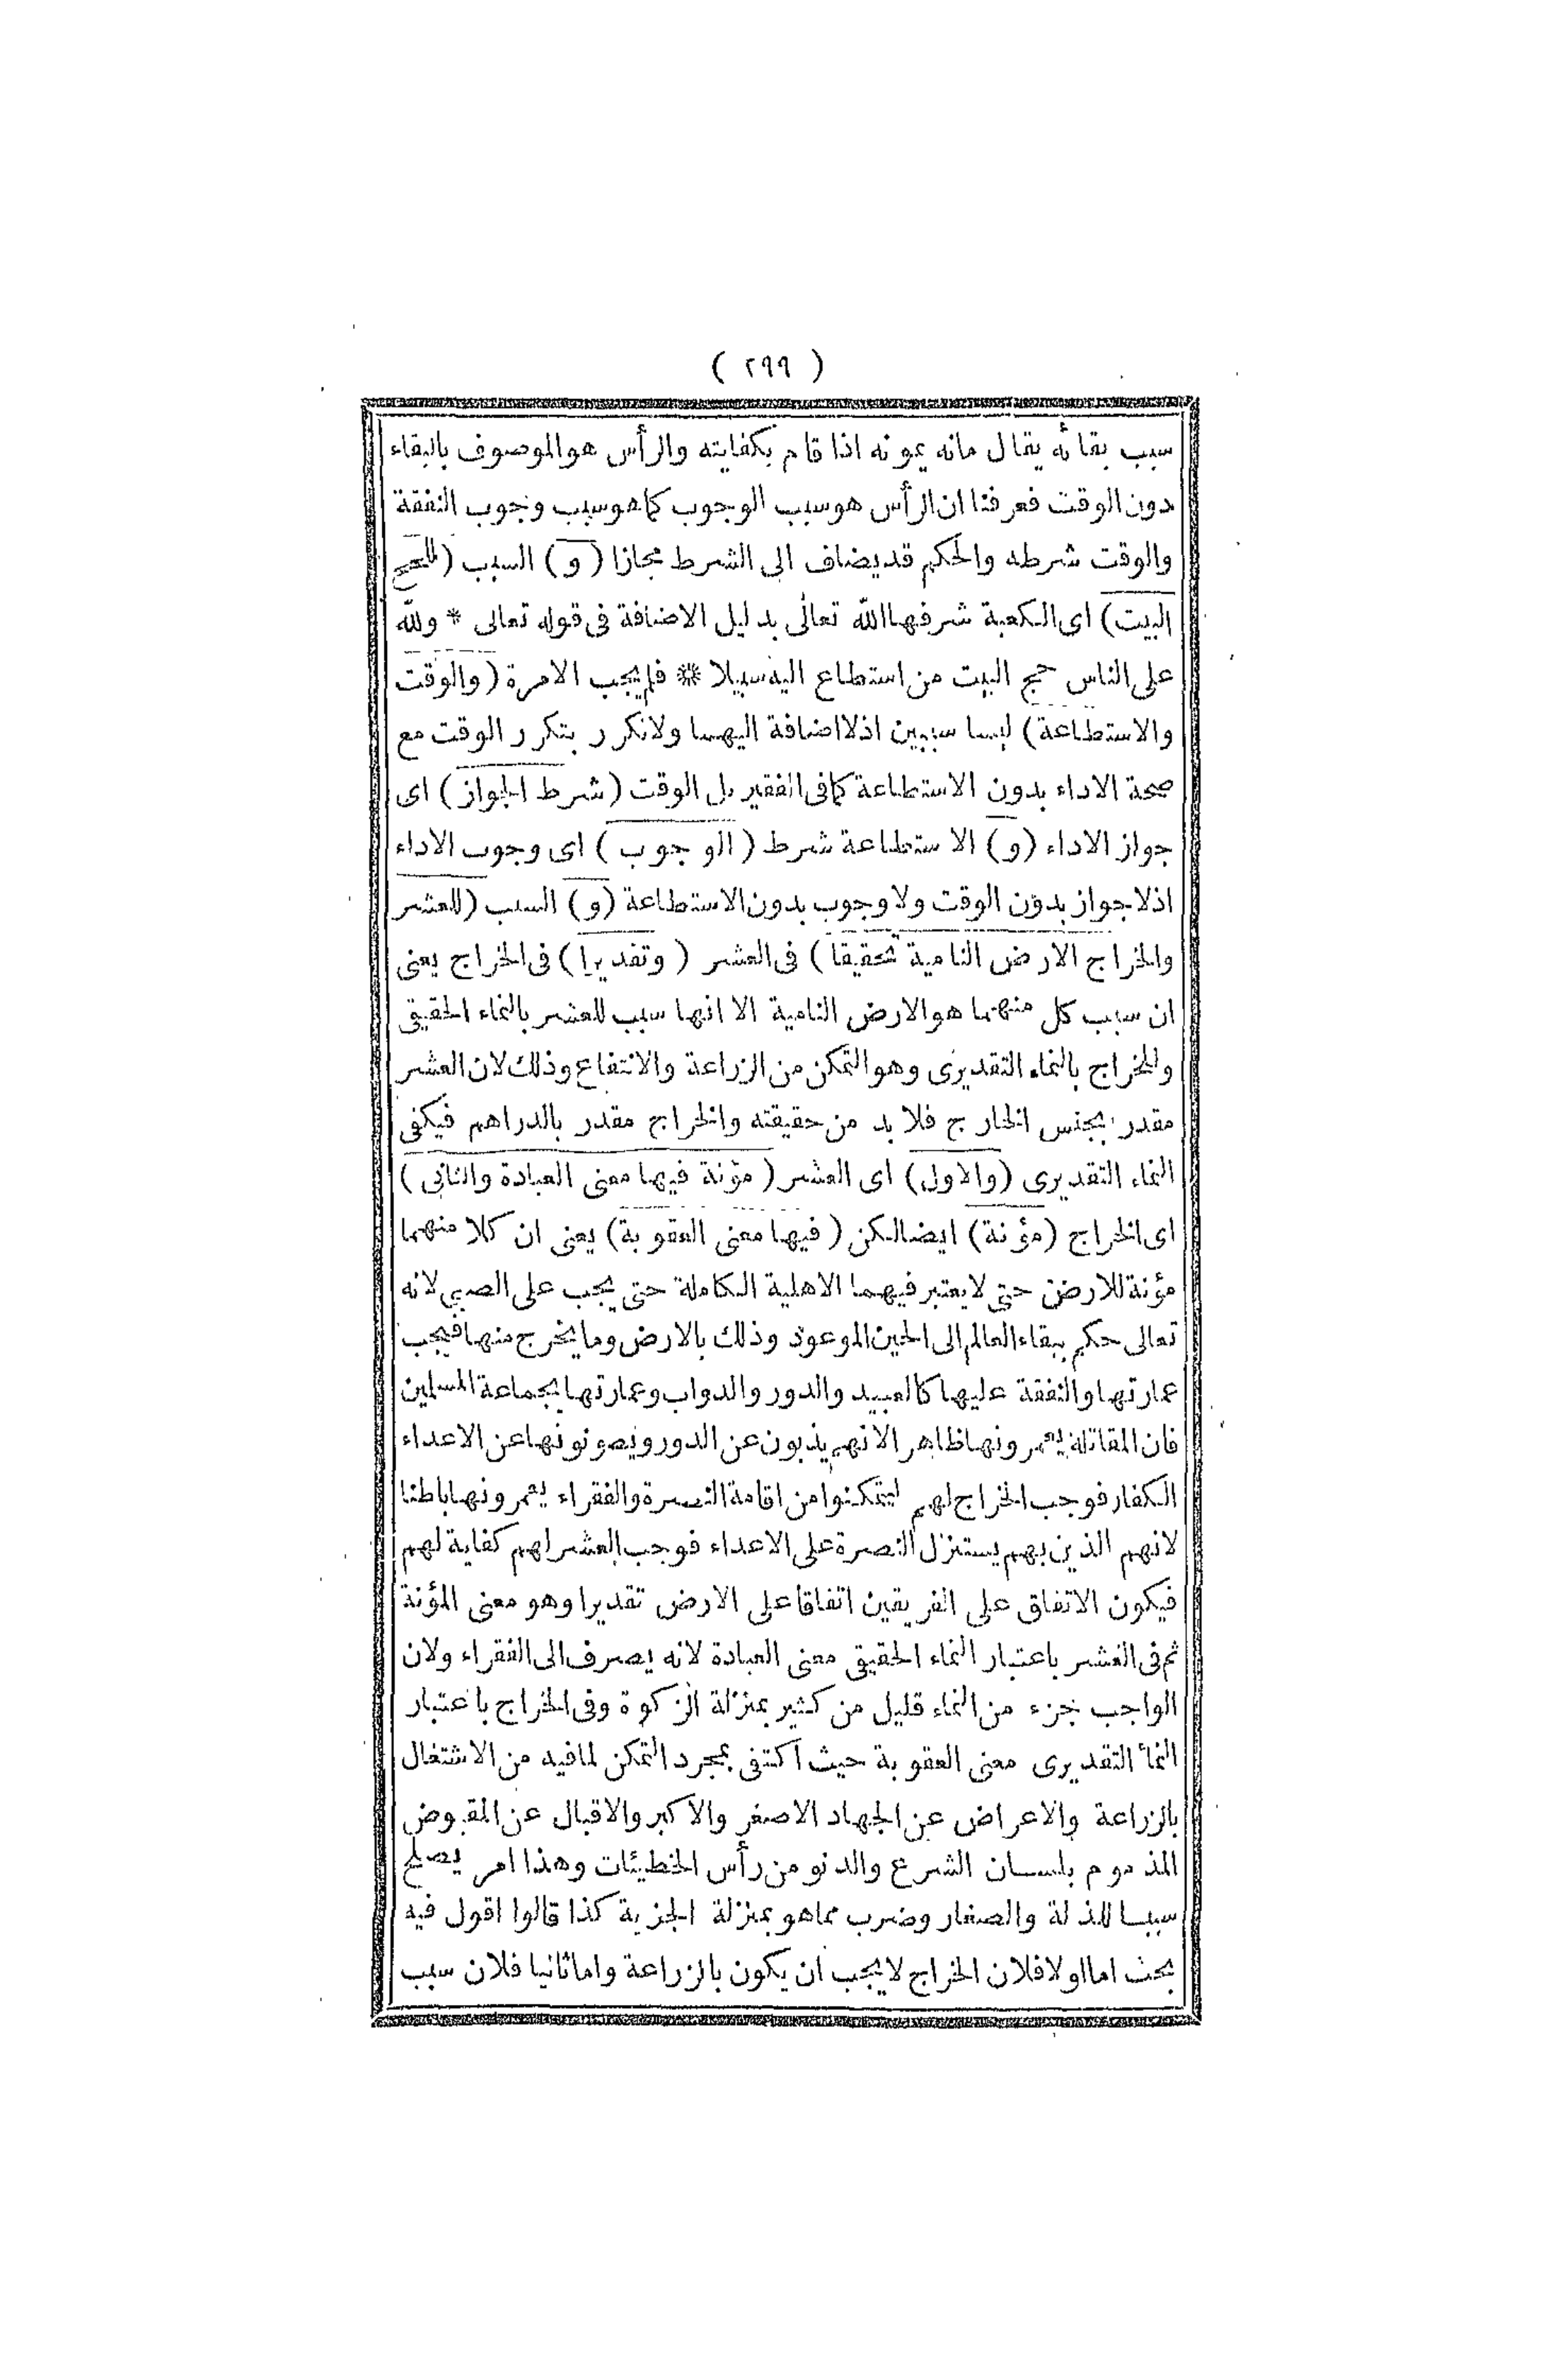 ( ٢٩٩ )
سبب بقائه يقال مانه يمونه اذا قام بكفايته والرأس هو الموصوف بالبقاء
دون الوقت فعرفنا ان الرأس هو سبب الوجوب كما هو سبب وجوب النفقة
والوقت شرطه والحكم قد يضاف الى الشرط مجازا ( و ) السبب ( للحج
البيت ) اى الكعبة شرفها الله تعالى بدليل الاضافة فى قوله تعالى * ولله
على الناس حج البيت من استطاع اليه سبيلا * فلم يجب الا مرة ( والوقت
والاستطاعة ) ليسا سببين اذلا اضافة اليهما ولا تكرر بتكرر الوقت مع
صحة الاداء بدون الاستطاعة كما فى الفقير بل الوقت ( شرط الجواز ) اى
جواز الاداء ( و ) الاستطاعة شرط ( الوجوب ) اى وجوب الاداء
اذلا جواز بدون الوقت ولا وجوب بدون الاستطاعة ( و ) السبب ( للعشر
والخراج الارض النامية تحقيقا ) فى العشر ( وتقديرا ) فى الخراج يعنى
ان سبب كل منهما هو الارض النامية الا انها سبب للعشر بالنماء الحقيقى
وللخراج بالنماء التقديرى وهو التمكن من الزراعة والانتفاع وذلك لان العشر
مقدر بجنس الخارج فلا بد من حقيقته والخراج مقدر بالدراهم فيكفى
النماء التقديرى ( والاول ) اى العشر ( مؤنة فيها معنى العبادة والثانى )
اى الخراج ( مؤنة ) ايضا لكن ( فيها معنى العقوبة ) يعنى ان كلا منهما
مؤنة للارض حتى لا يعتبر فيهما الاهلية الكاملة حتى يجب على الصبى لانه
تعالى حكم ببقاء العالم الى الحين الموعود وذلك بالارض وما يخرج منها فيجب
عمارتها والنفقة عليها كالعبيد والدور والدواب وعمارتها بجماعة المسلمين
فان المقاتلة يعمرونها ظاهرا لانهم يذبون عن الدور ويصونونها عن الاعداء
الكفار فوجب الخراج لهم ليتمكنوا من اقامة النصرة والفقراء يعمرونها باطنا
لانهم الذين بهم يستنزل النصرة على الاعداء فوجب العشر لهم كفاية لهم
فيكون الانفاق على الفريقين انفاقا على الارض تقديرا وهو معنى المؤنة
ثم فى العشر باعتبار النماء الحقيقى معنى العبادة لانه يصرف الى الفقراء ولان
الواجب جزء من النماء قليل من كثير بمنزلة الزكوة وفى الخراج باعتبار
النمأ التقديرى معنى العقوبة حيث اكتفى بمجرد التمكن لما فيه من الاشتغال
بالزراعة والاعراض عن الجهاد الاصغر والاكبر والاقبال عن المقبوض
المذموم بلسان الشرع والدنو من رأس الخطيئات وهذا امر يصلح
سببا للذلة والصغار وضرب ماهو بمنزلة الجزية كذا قالوا اقول فيه
بحث اما اولا فلان الخراج لا يجب ان يكون بالزراعة واما ثانيا فلان سبب